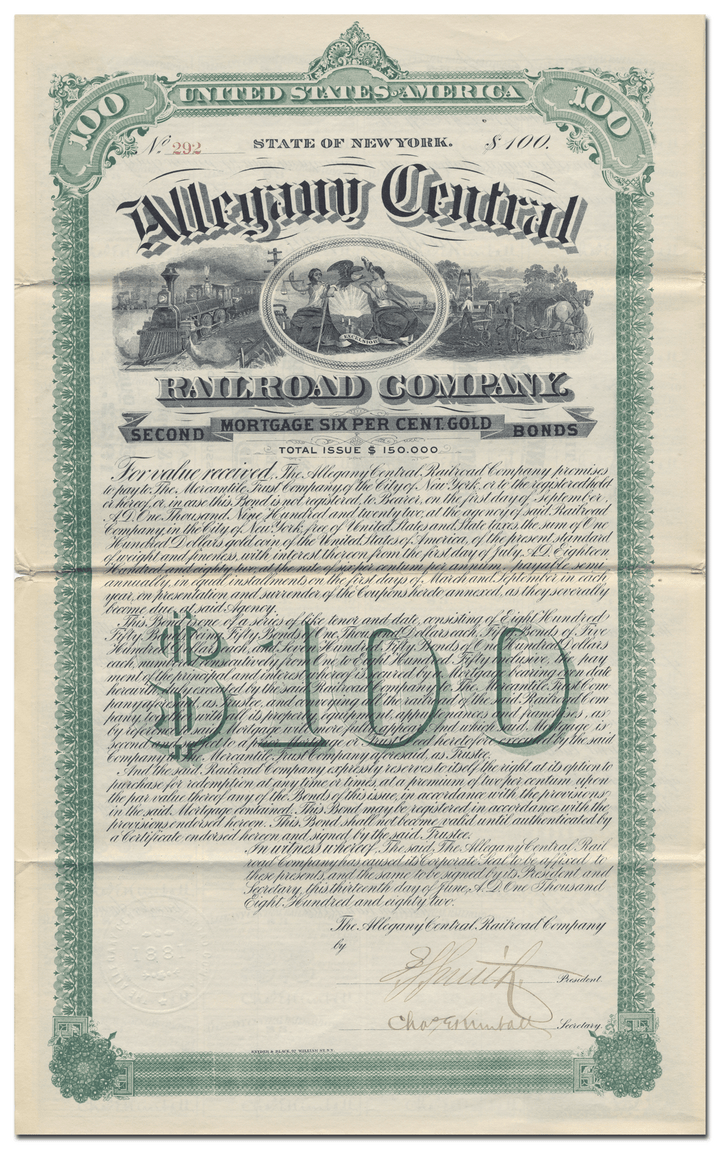 100 UNITED STATES OF AMERICA 100
No 292 STATE OF NEW YORK. $100.
Allegany Central
EXCELSIOR
RAILROAD COMPANY.
SECOND MORTGAGE SIX PER CENT. GOLD BONDS
TOTAL ISSUE $ 150.000
For value received, The Allegany Central Railroad Company promises
to pay to The Mercantile Trust Company of the City of New York, or to the registered hold
er hereof, or in case this Bond is not registered, to Bearer, on the first day of September,
A.D. One Thousand, Nine Hundred and twenty two, at the agency of said Railroad
Company, in the City of New York, free of United States and State taxes, the sum of One
Hundred Dollars gold coin of the United States of America, of the present standard
of weight and fineness, with interest thereon from the first day of July, A.D. Eighteen
Hundred and eighty two, at the rate of six per centum per annum, payable semi
annually, in equal installments on the first days of March and September in each
year, on presentation and surrender of the Coupons hereto annexed, as they severally
become due, at said Agency.
This Bond is one of a series of like tenor and date, consisting of Eight Hundred
Fifty Bonds, being Fifty Bonds of One Thousand Dollars each, Fifty Bonds of Five
Hundred Dollars each, and Seven Hundred Fifty Bonds of One Hundred Dollars
each, numbered consecutively from One to Eight Hundred Fifty inclusive, the pay
ment of the principal and interest whereof is secured by a Mortgage bearing even date
herewith, duly executed by the said Railroad Company to The Mercantile Trust Com
pany, as Trustee, and conveying all the railroad of the said Railroad Com
pany, together with all its property, equipment, appurtenances and franchises, as
by reference to said Mortgage will more fully appear, and which said Mortgage is
second and subject to a prior Mortgage or heretofore executed by the said
Company to The Mercantile Trust Company aforesaid, as Trustee.
And the said Railroad Company expressly reserves to itself the right at its option to
purchase for redemption at any time or times, at a premium of two per centum upon
the par value thereof any of the Bonds of this issue, in accordance with the provisions
in the said Mortgage contained. This Bond may be registered in accordance with the
provisions endorsed hereon. This Bond shall not become valid until authenticated by
a Certificate endorsed hereon and signed by the said Trustee.
$100
In witness whereof, The said, The Allegany Central Rail
road Company has caused its Corporate Seal to be affixed to
these presents, and the same to be signed by its President and
Secretary, this thirteenth day of June, A.D. One Thousand
Eight Hundred and eighty two.
The Allegany Central Railroad Company
by
President.
Chas E Kimball Secretary.
1881